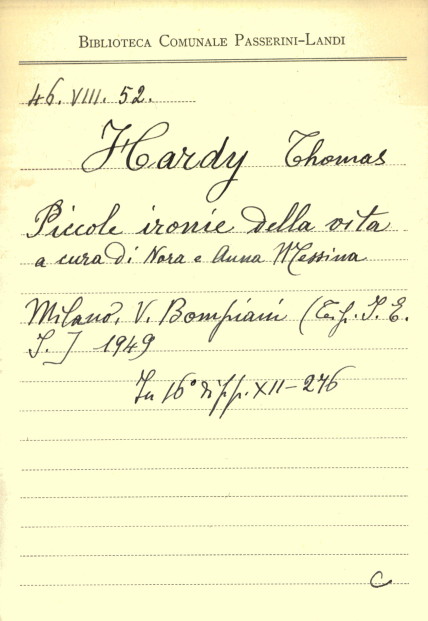 BIBLIOTECA COMUNALE PASSERINI-LANDI
46. VIII. 52.
Hardy Thomas
Piccole ironie della vita
a cura di Nora e Anna Messina
Milano, V. Bompiani (Tip. I. E.
I.] 1949
In 16° di pp. XII-276
C